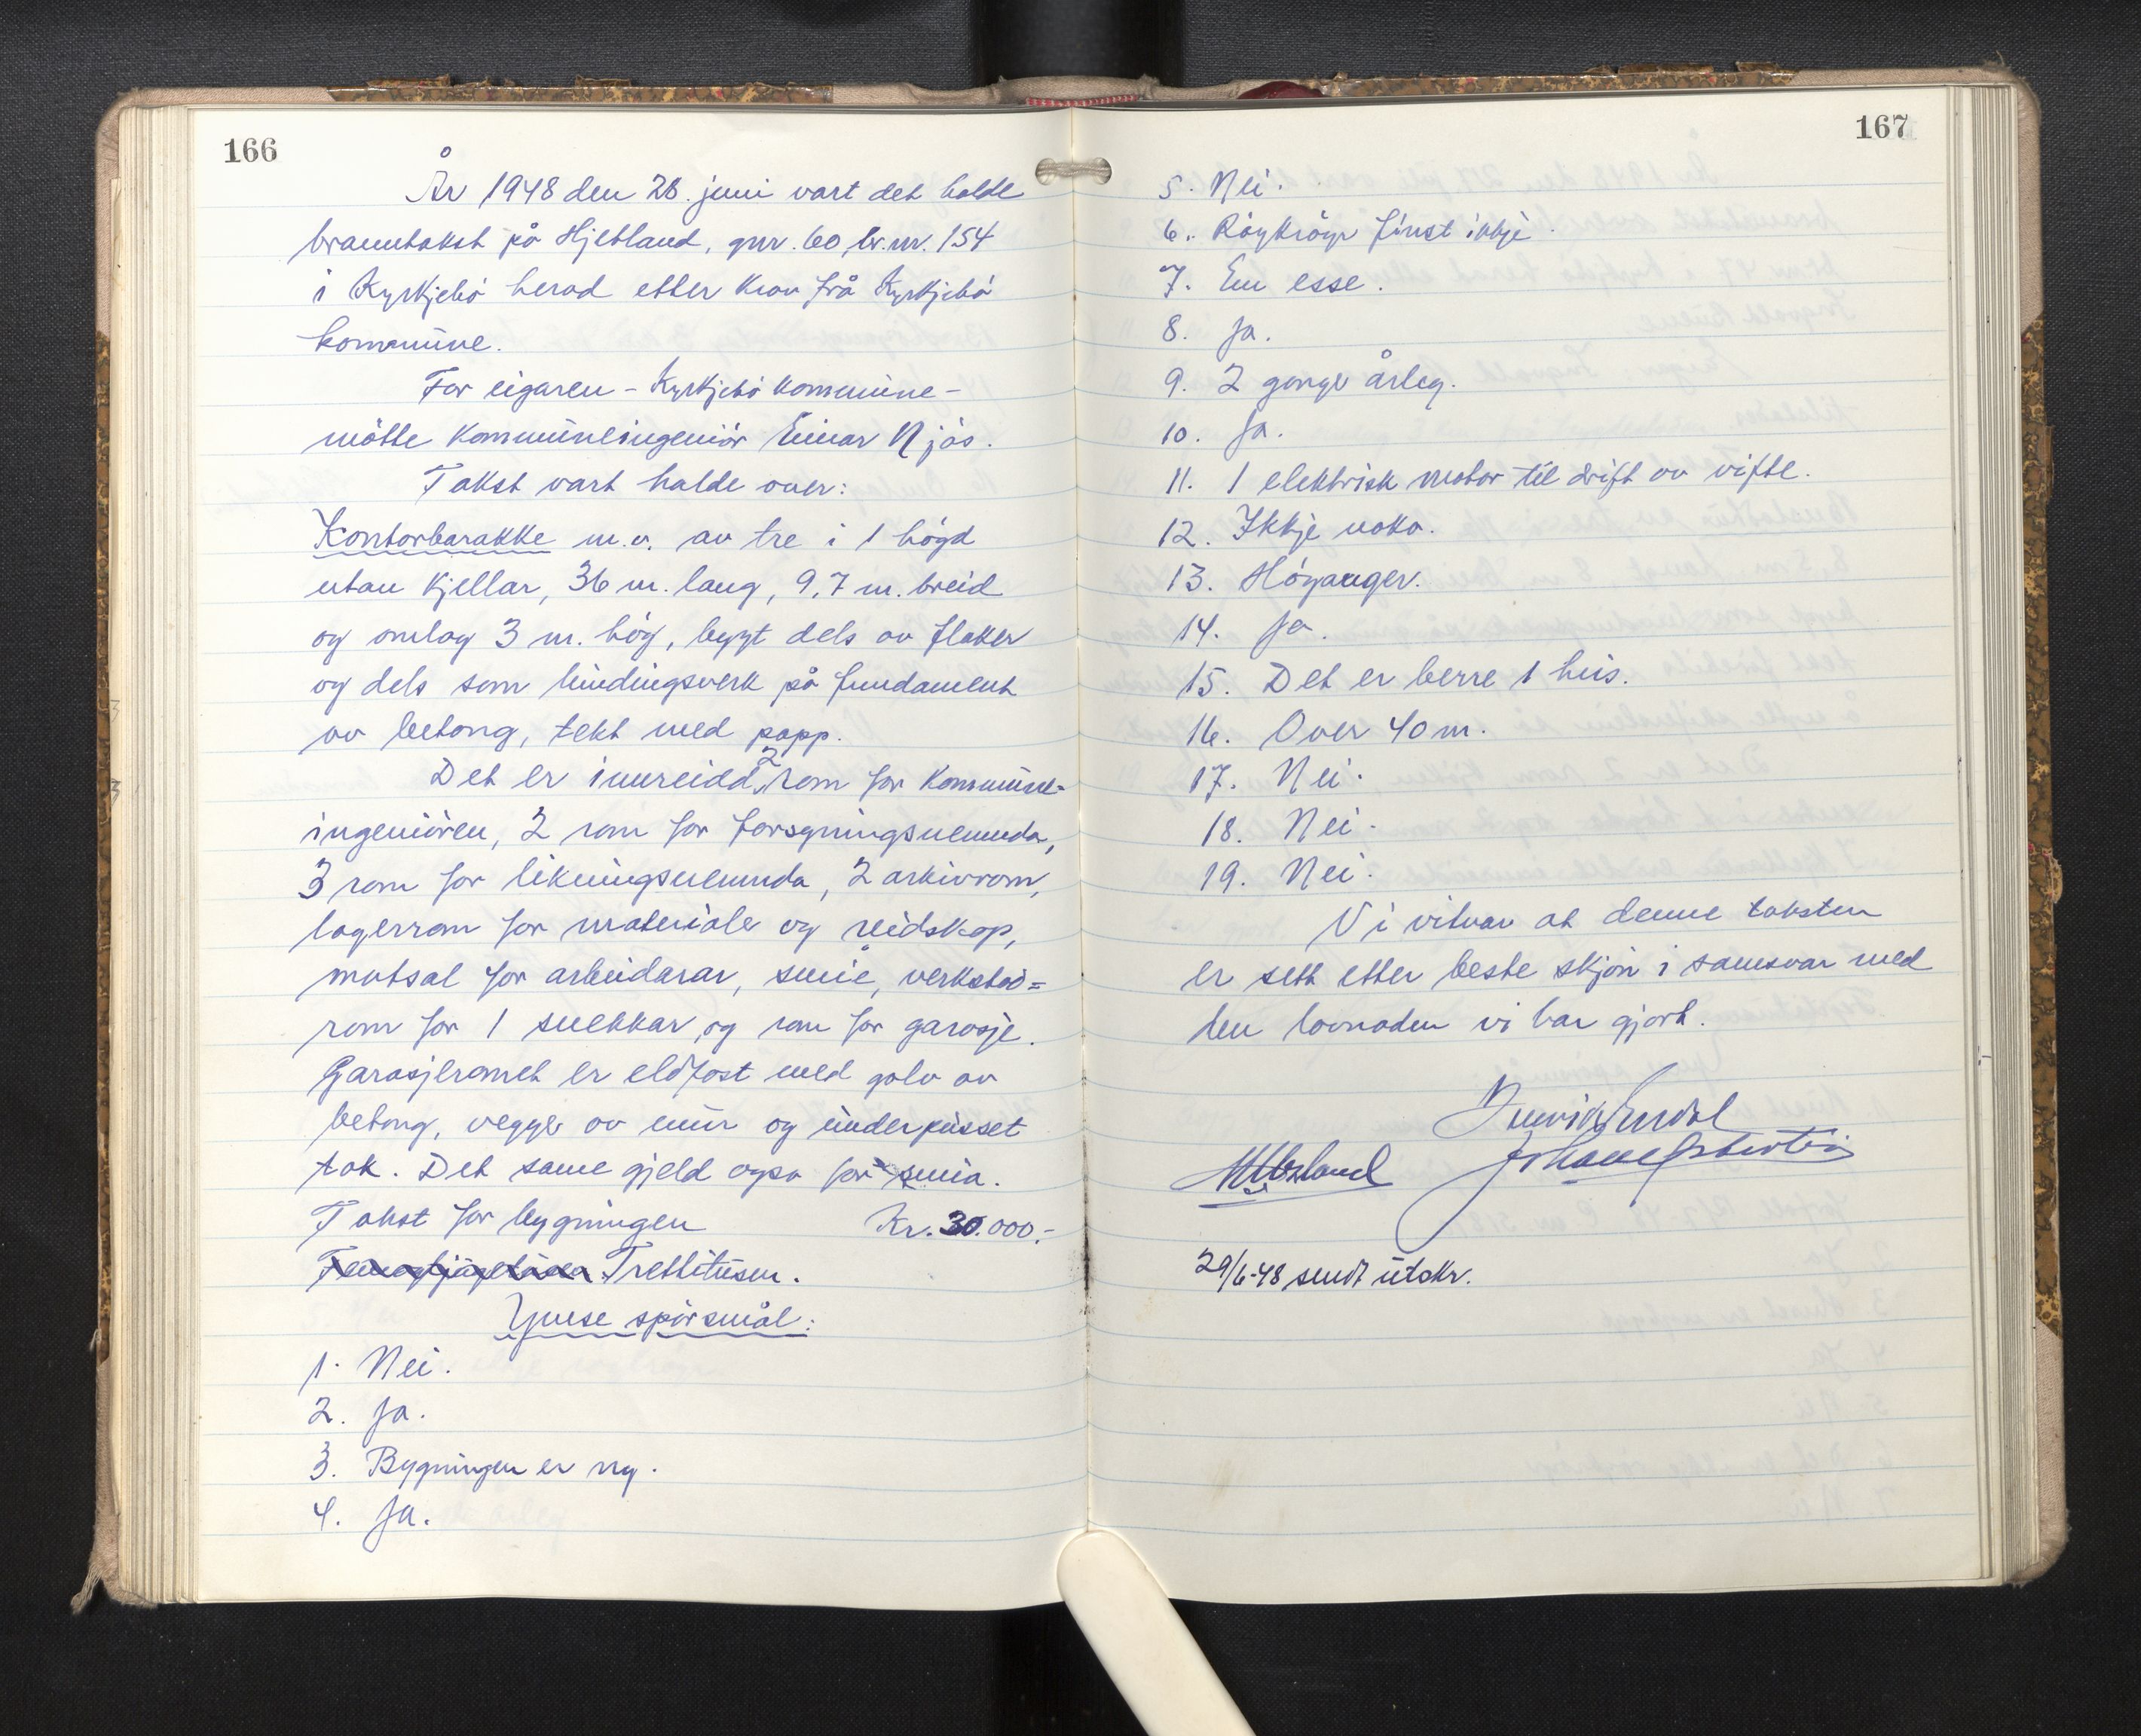 166
År 1948 den 28. juni vart det halde
branntakst på Hjetland, gnr. 60 br.nr. 154
i Kyrkjebö herad etter krav frå Kyrkjebö
kommune.
For eigaren - Kyrkjebö kommune -
mötte kommuneingeniör Einar Njös.
Takst vart halde over:
Kontorbarakke m.v. av tre i 1 högd
utan kjellar, 36 m. lang, 9,7 m. breid
og omlag 3 m. hög, bygt dels av flaker
og dels som bindingsverk på fundament
av betong, tekt med papp.
Det er innreidd 2 rom for kommune=
ingeniören, 2 rom for forsyningsnemnda,
3 rom for likningsnemnda, 2 arkivrom,
lagerrom for materialer og reidskap,
matsal for arbeidarar, smie, verkstad=
rom for 1 snekkar, og rom for garasje.
Garasjeromet er eldfast med golv av
betong, vegger av mur og underpusset
tak. Det same gjeld også for smia.
Takst for bygningen Kr. 30.000.-
Trettitusen.
Ymse spörsmål:
1. Nei.
2. Ja.
3. Bygningen er ny.
4. Ja.
167
5. Nei.
6. Röykröyr finst ikkje.
7. Ein esse.
8. Ja.
9. 2 gonger årleg.
10. Ja.
11. 1 elektrisk motor til drift av vifte.
12. Ikkje noko.
13. Höyanger.
14. Ja.
15. Det er berre 1 hus.
16. Over 40 m.
17. Nei.
18. Nei.
19. Nei.
Vi vitnar at denne taksten
er sett etter beste skjön i samsvar med
den lovnaden vi har gjort.
29/6-48 sendt utskr.